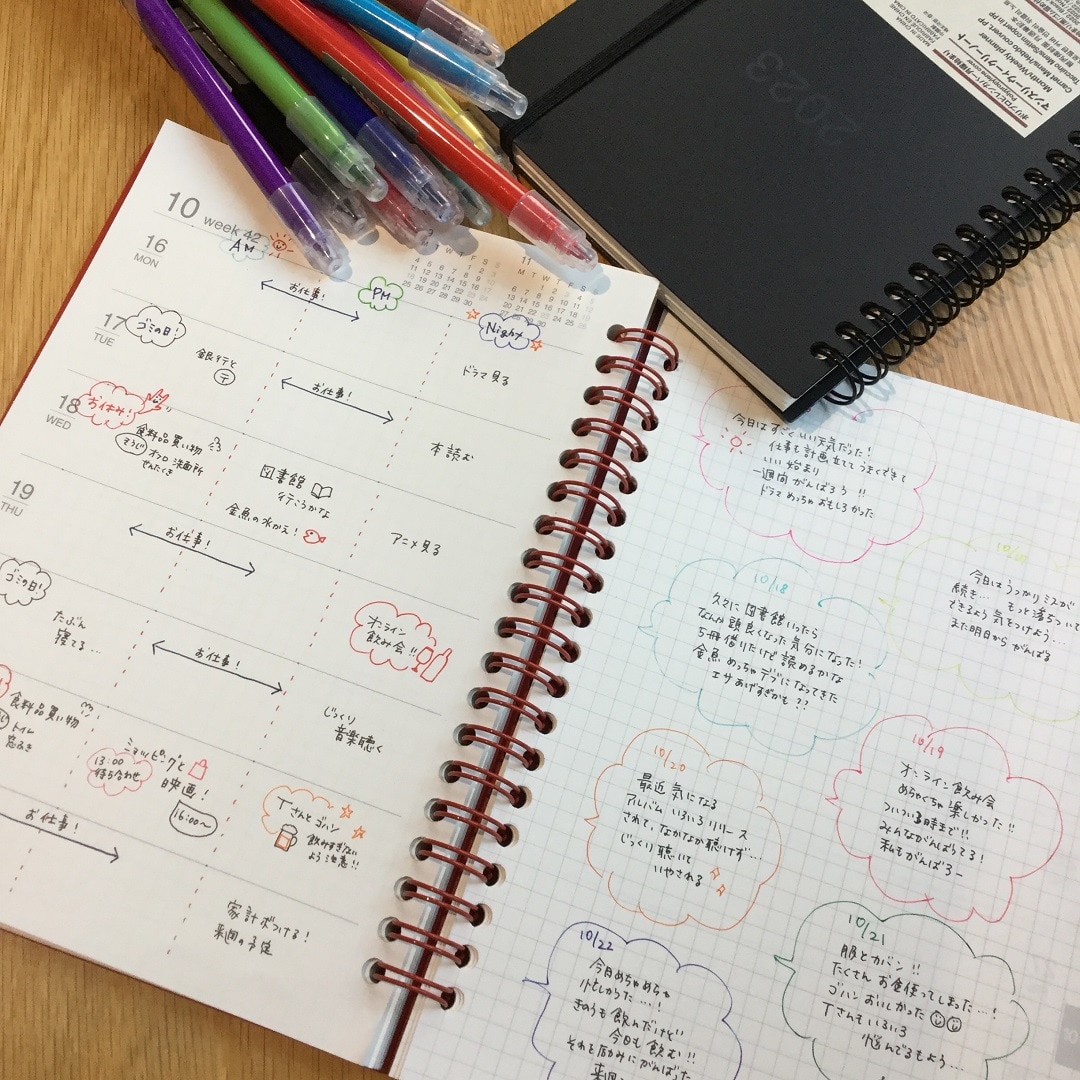 10 week 42
16
MON
AM
お仕事!
PM
Night
ドラマ見る
11
M T W T F S
17
TUE
ゴミの日!
銀行と
〒
お仕事!
本読む
18
WED
お休み!
食料品買い物
そうじ オフロ 洗面所
せんたくき
図書館
行こうかな
金魚の水かえ!
アニメ見る
19
THU
お仕事!
オンライン
飲み会!!
ゴミの日!
たぶん
寝てる…
お仕事!
じっくり
音楽聴く
食料品買い物
トイレ
窓ふき
ショッピングと
映画!
13:00
待ち合わせ
16:00〜
Tさんとゴハン
飲みすぎない
よう注意!!
お仕事!
家計ボつける!
来週の予定
今日はすごくいい天気だった!
仕事も計画立ててうまくできて
いい始まり
一週間がんばろう!!
ドラマめっちゃおもしろかった
今日はうっかりミスが
続き… もっと落ちついて
できるよう気をつけよう…
また明日からがんばる
10/18
久々に図書館いったら
なんか頭良くなった気分になった!
5冊借りたけど読めるかな
金魚めっちゃデブになってきた
エサあげすぎかも??
10/19
オンライン飲み会
めちゃくちゃ楽しかった!!
ついつい3時まで!!
みんながんばってる!
私もがんばろー
10/20
最近気になる
アルバムいろいろリリース
されて、なかなか聴けず…
じっくり聴いて
いやされる
10/21
服とカバン!!
たくさんお金使ってしまった…!
ゴハンおいしかった
Tさんもいろいろ
悩んでるもよう…
10/22
今日めちゃめちゃ
忙しかった…!
きのうも飲んだけど
今日も飲む!!
それを励みにがんばった
2023
マンスリーウィークリーノート
Monthly/Weekly planner
MADE IN CHINA
FABRIQUÉ EN CHINE